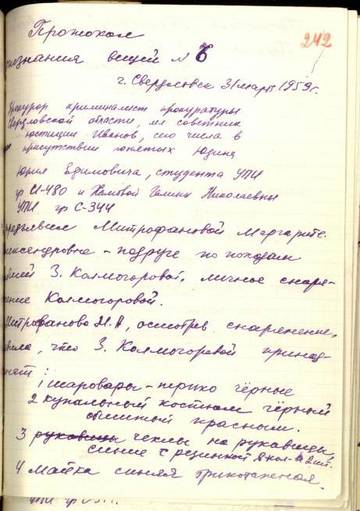 242
Протокол
опознания вещей № 6
г. Свердловск 31 марта 1959 г.
Прокурор криминалист прокуратуры
Свердловской области, мл советник
юстиции Иванов, сего числа в
присутствии понятых Юдина
Юрия Ефимовича, студента УПИ
гр И-480 и Галины Николаевны
УПИ гр С-344
Митрофановой Маргарите
Александровне - подруге по походам
З. Колмогоровой, личное снаря-
жение Колмогоровой.
Митрофанова М.А, осмотрев снаряжение,
что З. Колмогоровой принад-
лежат:
1 шаровары - трико чёрные
2 купальный костюм чёрный
вышитый красным.
3 рукавицы чехлы на рукавицы
синие с резинкой в кол-ве 2 шт.
4 Майка синяя трикотажная.